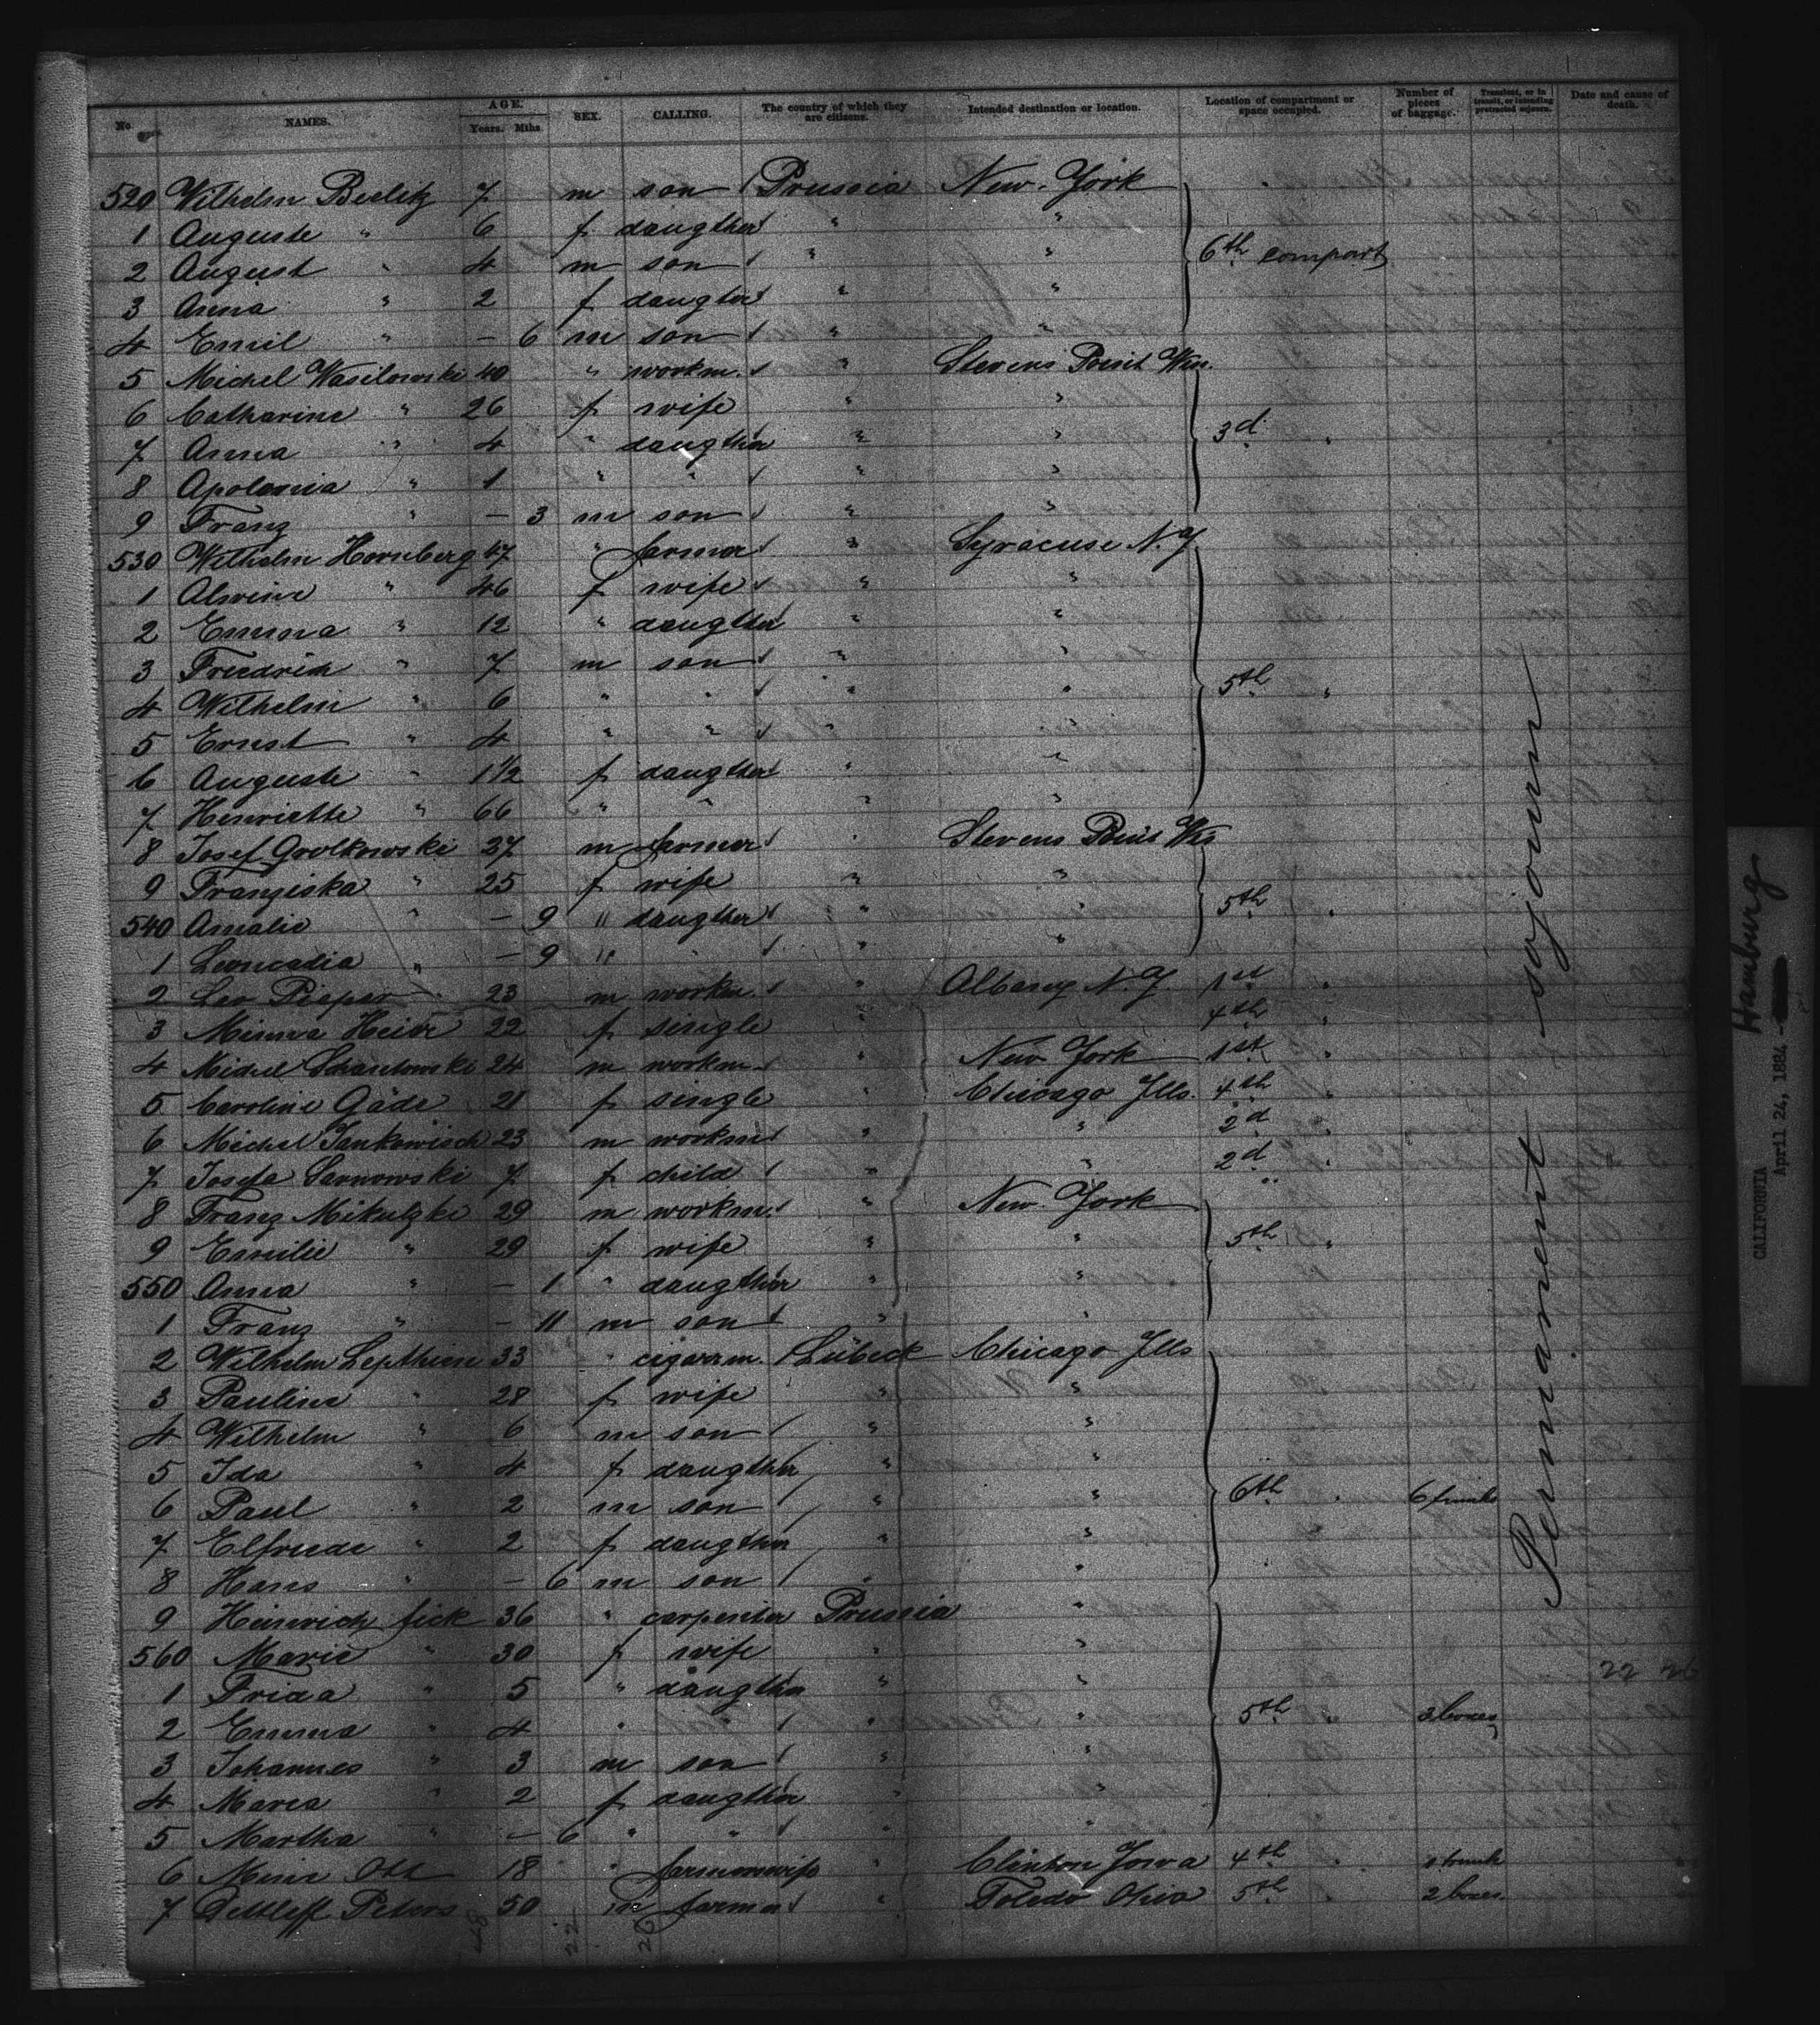 No NAMES. AGE. Years. Mths. SEX. CALLING. The country of which they are citizens. Intended destination or location. Location of compartment or space occupied. Number of pieces of baggage. Transient, or in transit, or intending protracted sojourn. Date and cause of death.
520 Wilhelm Beelitz 7 m son Prussia New-York
1 Auguste " 6 f daugther " "
2 August " 4 m son " " 6th compart
3 Anna " 2 f daugter " "
4 Emil " – 6 m son " "
5 Michel Wasilowski 40 " workm. " Stevens Point Wis.
6 Catharine " 26 f wife " "
7 Anna " 4 " daugther " " 3d "
8 Apolonia " 1 " " " "
9 Franz " – 3 m son " "
530 Wilhelm Hornberg 47 " farmer " Syracuse N.Y.
1 Alwine " 46 f wife " "
2 Emma " 12 " daugther " "
3 Friedrich " 7 m son " "
4 Wilhelm " 6 " " " " 5th "
5 Ernst " 4 " " " "
6 Auguste " 1½ f daugther " "
7 Henriette " 66 " " " "
8 Josef Grolkowski 37 m farmer " Stevens Point Wis
9 Franziska " 25 f wife " "
540 Amalie " – 9 " daugther " " 5th "
1 Leoncadia " – 9 " " " "
2 Leo Pieper 23 m workm. " Albany N.Y. 1st "
3 Minna Heier 22 f single " 4th "
4 Michel 24 m workm. " New-York 1st "
5 Caroline Gäde 21 f single " Chicago Ills. 4th "
6 Michel Jankowisch 23 m workm " " 2d "
7 Josefa Sarnowski 7 f child " " 2d "
8 Franz Mikulzki 29 m workm. " New-York
9 Emilie " 29 f wife " " 5th "
550 Anna " – 1 " daugther " "
1 Franz " – 11 m son " "
2 Wilhelm Lepthien 33 " cigarrm. Lübeck Chicago Ills
3 Pauline " 28 f wife " "
4 Wilhelm " 6 m son " "
5 Ida " 4 f daugther " "
6 Paul " 2 m son " " 6th " 6 trunks
7 Elfriede " 2 f daugther " "
8 Hans " – 6 m son " "
9 Heinrich fick 36 " carpenter Prussia "
560 Marie " 30 f wife " "
1 Frida " 5 " daugther " "
2 Emma " 4 " " " " 5th " 3 boxes
3 Johannes " 3 m son " "
4 Maria " 2 f daugther " "
5 Martha " – 6 " " " "
6 Ott 18 " farmerswife " Clinton Jowa 4th " 1 trunk
7 Dettleff Peters 50 m farmer " Toledo Ohio 5th " 2 boxes
Permanent sojourn
22 26
48 22 26
Hamburg
CALIFORNIA
April 24, 1884 -